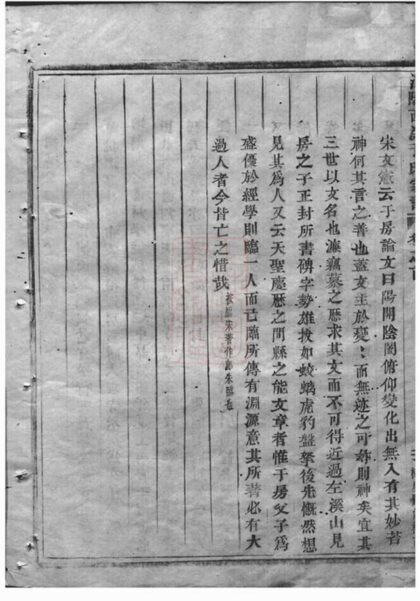 宋文憲云于房論文曰陽開陰闔俯仰變化出無入有其妙若
神何其言之善也蓋文主於變〻而無迹之可尋則神矣宜其
三世以文名也濂竊慕之歷求其文而不可得近過左溪山見
房之子正封所書碑字勢雄拔如蛟螭虎豹盤拏後先慨然想
見其為人又云天聖慶歷之間縣之能文章者惟于房父子為
盛優於經學則臨一人而已臨所傳有淵源意其所著必有大
過人者今皆亡之惜哉